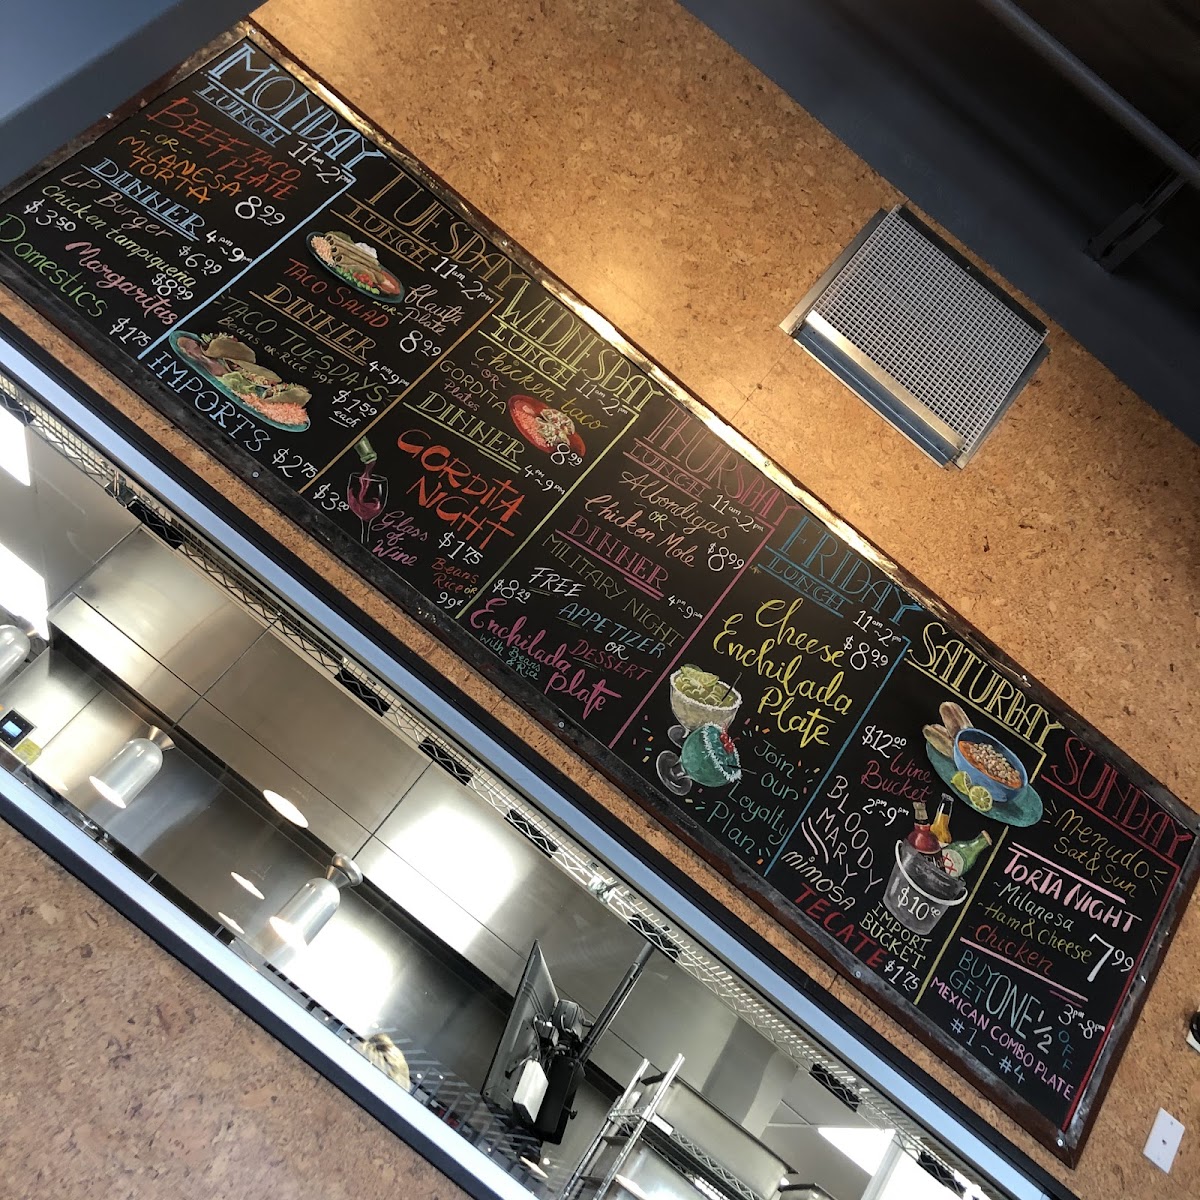 MONDAY
LUNCH 11am~2pm
BEEF TACO PLATE
~OR~
MILANESA
TORTA 8.99
DINNER 4pm~9pm
LP Burger $6.99
Chicken tampiqueña $8.99
$3.50 Margaritas
Domestics $1.75
TUESDAY
LUNCH 11am~2pm
TACO SALAD -OR- flauta Plate
8.99
DINNER 4pm~9pm
~TACO TUESDAYS~
Beans or Rice 99¢ $1.59 each
IMPORTS $2.75
WEDNESDAY
LUNCH 11am~2pm
Chicken taco
~OR~
GORDITA
Plates 8.99
DINNER 4pm~9pm
GORDITA
NIGHT
$1.75
Beans
Rice OR
99¢
$3.00 Glass
of
Wine
THURSDAY
LUNCH 11am~2pm
Albondigas
~OR~
Chicken Mole $8.99
DINNER 4pm~9pm
MILITARY NIGHT
FREE
APPETIZER
OR
DESSERT
$8.29
Enchilada
with Beans & Rice
Plate
FRIDAY
LUNCH 11am~2pm
$8.99
Cheese
Enchilada
Plate
Join
our
Loyalty
Plan
SATURDAY
$12.00
Wine
Bucket
2pm~9pm
BLOODY
MARY
mimosa
TECATE $1.75
$10.00
IMPORT
BUCKET
SUNDAY
Menudo
Sat & Sun
TORTA NIGHT
~Milanesa
~Ham & Cheese
~Chicken
7.99
3pm~8pm
BUY ONE
GET 1/2 OFF
MEXICAN COMBO PLATE
#1~#4